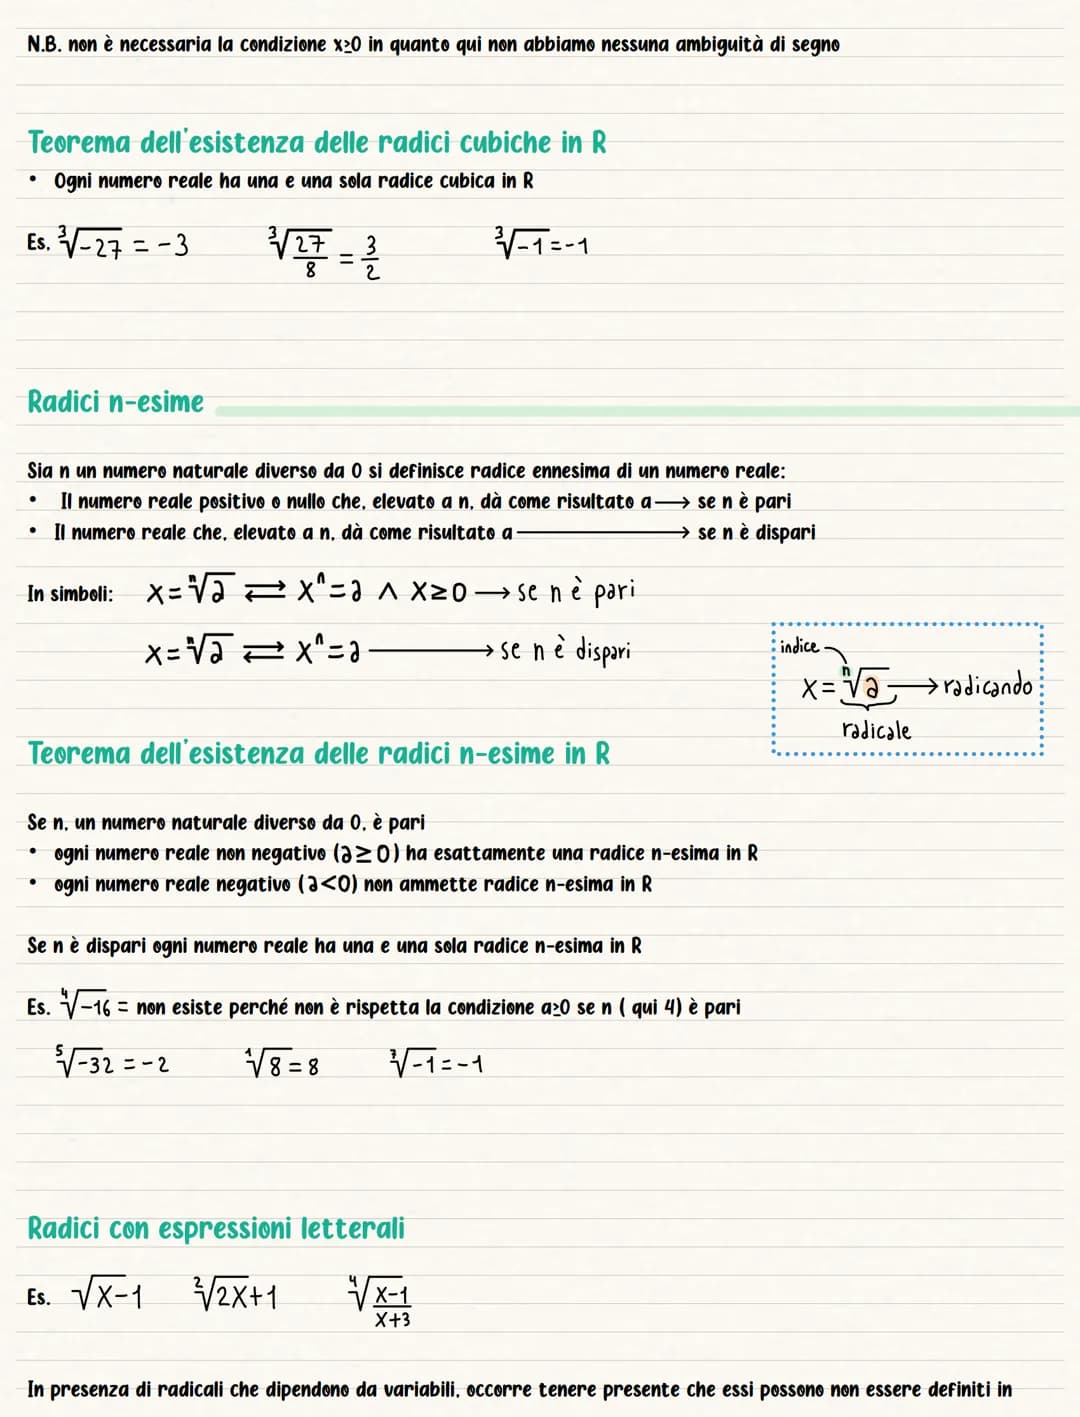 N.B. non è necessaria la condizione x≥0 in quanto qui non abbiamo nessuna ambiguità di segno
Teorema dell'esistenza delle radici cubiche in R
• Ogni numero reale ha una e una sola radice cubica in R
Es. ∛-27 = -3 ∛27/8 = 3/2 ∛-1 = -1
Radici n-esime
Sia n un numero naturale diverso da 0 si definisce radice ennesima di un numero reale:
• Il numero reale positivo o nullo che, elevato a n, dà come risultato a → se n è pari
• Il numero reale che, elevato a n, dà come risultato a → se n è dispari
In simboli: x = ⁿ√a ⇄ xⁿ = a ∧ x≥0 → se n è pari
x = ⁿ√a ⇄ xⁿ = a → se n è dispari
indice
x = ⁿ√a → radicando
radicale
Teorema dell'esistenza delle radici n-esime in R
Se n, un numero naturale diverso da 0, è pari
• ogni numero reale non negativo (a≥0) ha esattamente una radice n-esima in R
• ogni numero reale negativo (a<0) non ammette radice n-esima in R
Se n è dispari ogni numero reale ha una e una sola radice n-esima in R
Es. ⁴√-16 = non esiste perché non è rispetta la condizione a≥0 se n ( qui 4) è pari
⁵√-32 = -2 ¹√8 = 8 ⁷√-1 = -1
Radici con espressioni letterali
Es. √x-1 ²√2x+1 ⁴√x-1/x+3
In presenza di radicali che dipendono da variabili, occorre tenere presente che essi possono non essere definiti in